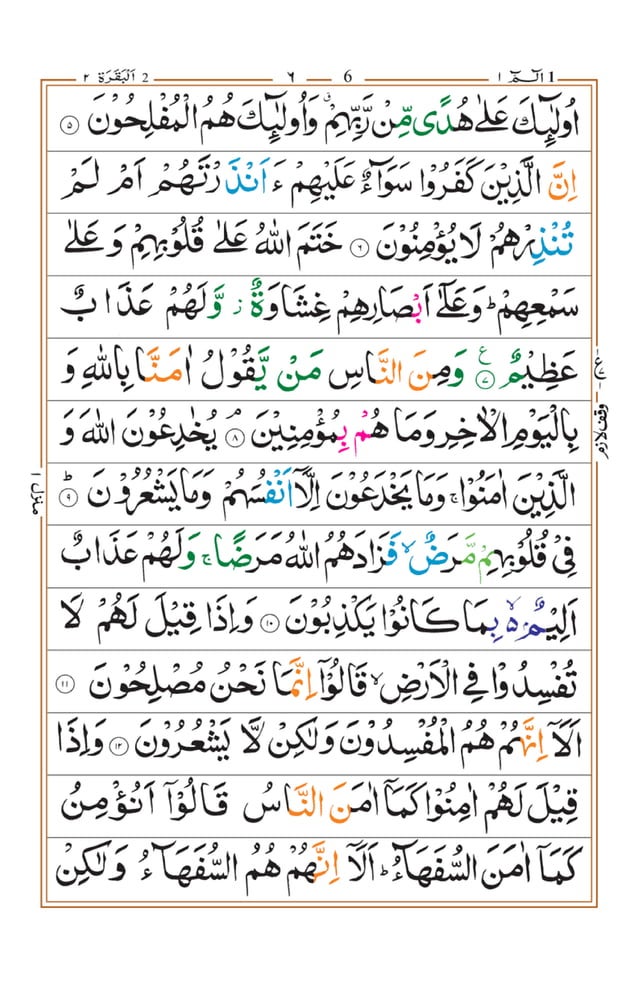 1 الٓمّٓ ١ 6 ٦ 2 اَلْبَقَرَة ٢
اُولٰٓئِكَ عَلٰى هُدًى مِّنْ رَّبِّهِمْ ۗ وَاُولٰٓئِكَ هُمُ الْمُفْلِحُوْنَ ۝٥
اِنَّ الَّذِيْنَ كَفَرُوْا سَوَآءٌ عَلَيْهِمْ ءَاَنْذَرْتَهُمْ اَمْ لَمْ
تُنْذِرْهُمْ لَا يُؤْمِنُوْنَ ۝٦ خَتَمَ اللّٰهُ عَلٰى قُلُوْبِهِمْ وَعَلٰى
سَمْعِهِمْ ؕ وَعَلٰٓى اَبْصَارِهِمْ غِشَاوَةٌ ز وَّلَهُمْ عَذَابٌ
عَظِيْمٌ ۝٧ ع وَمِنَ النَّاسِ مَنْ يَّقُوْلُ اٰمَنَّا بِاللّٰهِ وَ
بِالْيَوْمِ الْاٰخِرِ وَمَا هُمْ بِمُؤْمِنِيْنَ ۝٨ ۘ يُخٰدِعُوْنَ اللّٰهَ وَ
الَّذِيْنَ اٰمَنُوْا ۚ وَمَا يَخْدَعُوْنَ اِلَّآ اَنْفُسَهُمْ وَمَا يَشْعُرُوْنَ ۝٩ ؕ
فِيْ قُلُوْبِهِمْ مَّرَضٌ ۙ فَزَادَهُمُ اللّٰهُ مَرَضًا ۚ وَلَهُمْ عَذَابٌ
اَلِيْمٌۢ ۙ۵ بِمَا كَانُوْا يَكْذِبُوْنَ ۝١٠ وَاِذَا قِيْلَ لَهُمْ لَا
تُفْسِدُوْا فِى الْاَرْضِ ۙ قَالُوْٓا اِنَّمَا نَحْنُ مُصْلِحُوْنَ ۝١١
اَلَآ اِنَّهُمْ هُمُ الْمُفْسِدُوْنَ وَلٰكِنْ لَّا يَشْعُرُوْنَ ۝١٢ وَاِذَا
قِيْلَ لَهُمْ اٰمِنُوْا كَمَآ اٰمَنَ النَّاسُ قَالُوْٓا اَنُؤْمِنُ
كَمَآ اٰمَنَ السُّفَهَآءُ ؕ اَلَآ اِنَّهُمْ هُمُ السُّفَهَآءُ وَلٰكِنْ
ع
وقف لازم
منزل ١